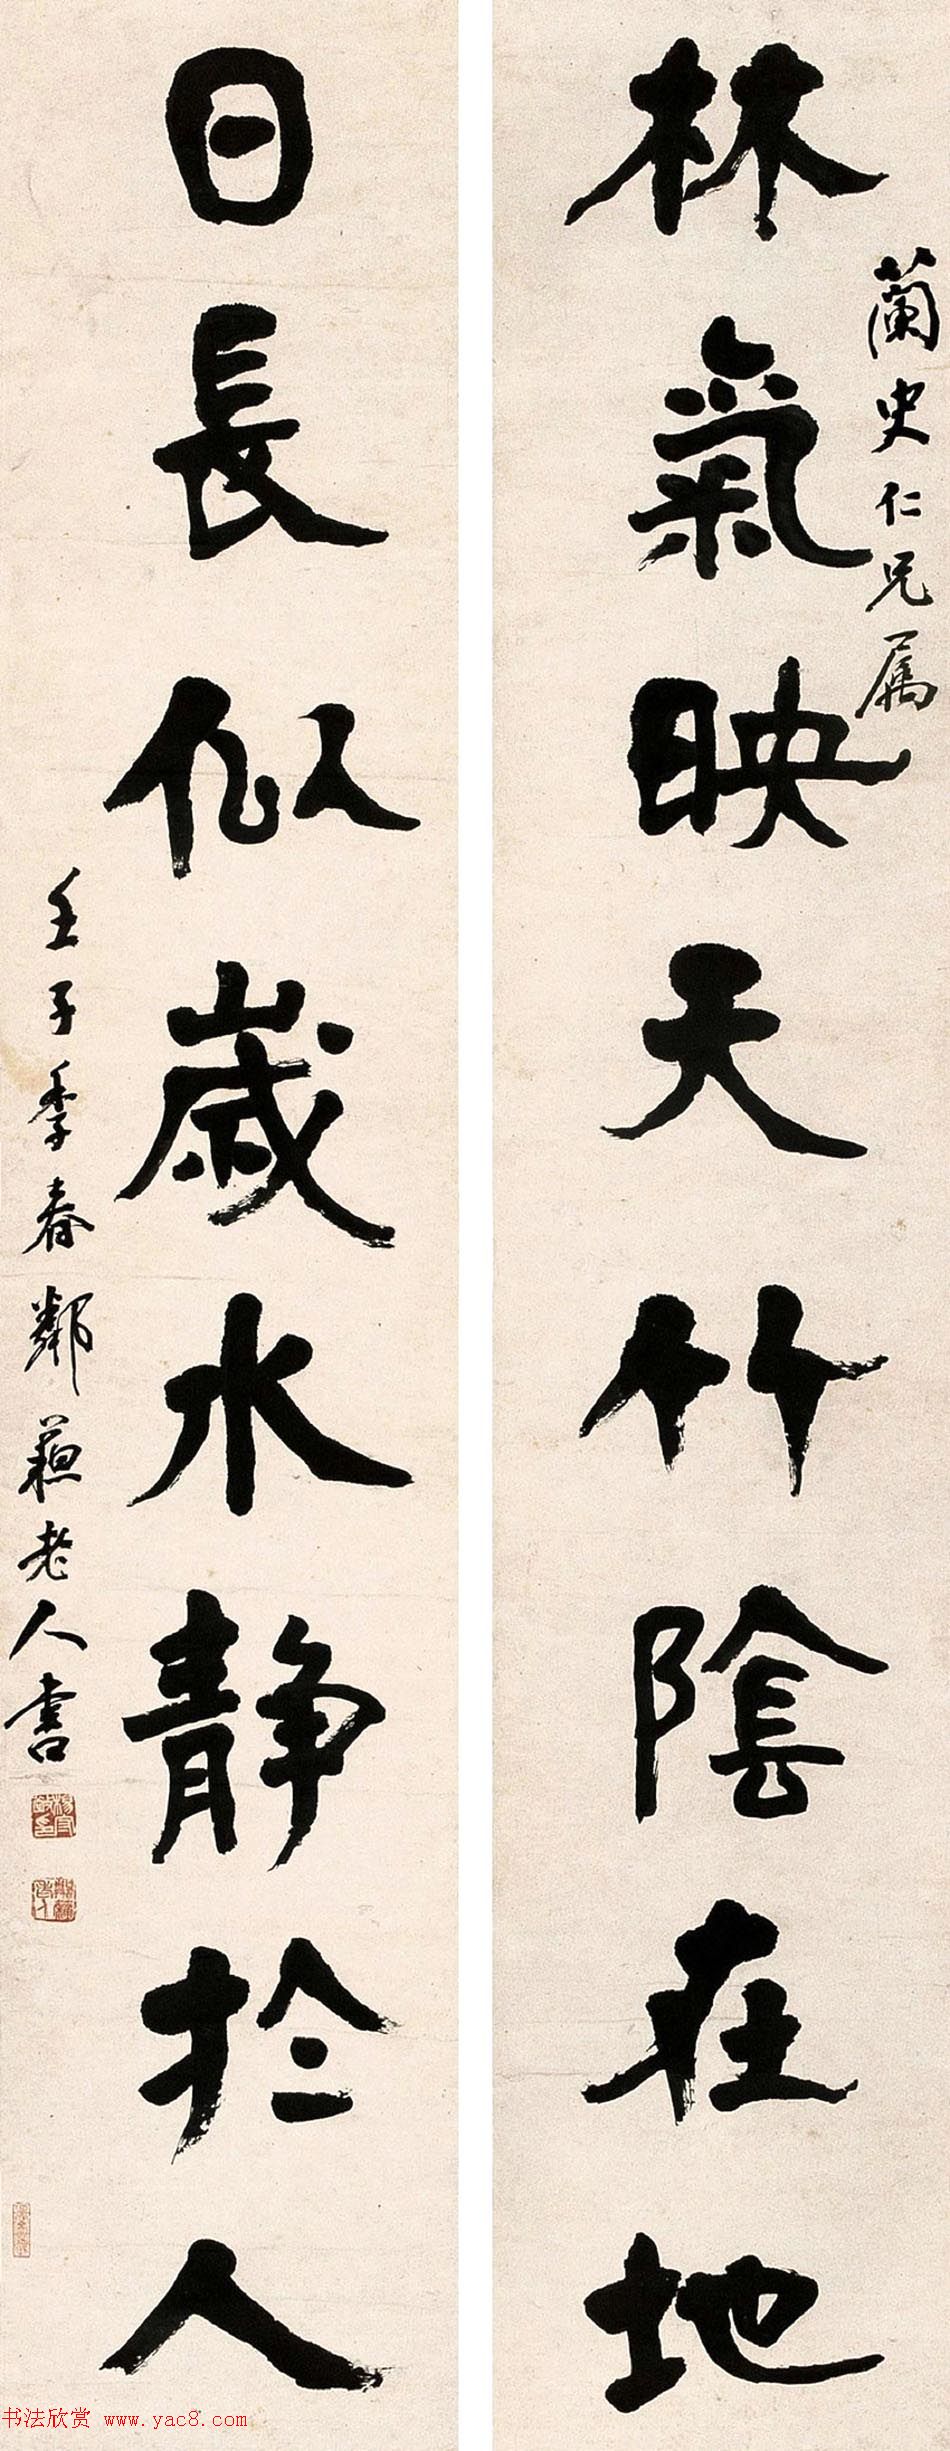 蘭史仁兄属
林氣映天竹陰在地
日長似歲水静於人
壬子季春鄰蘓老人書
书法欣赏 www.yac8.com